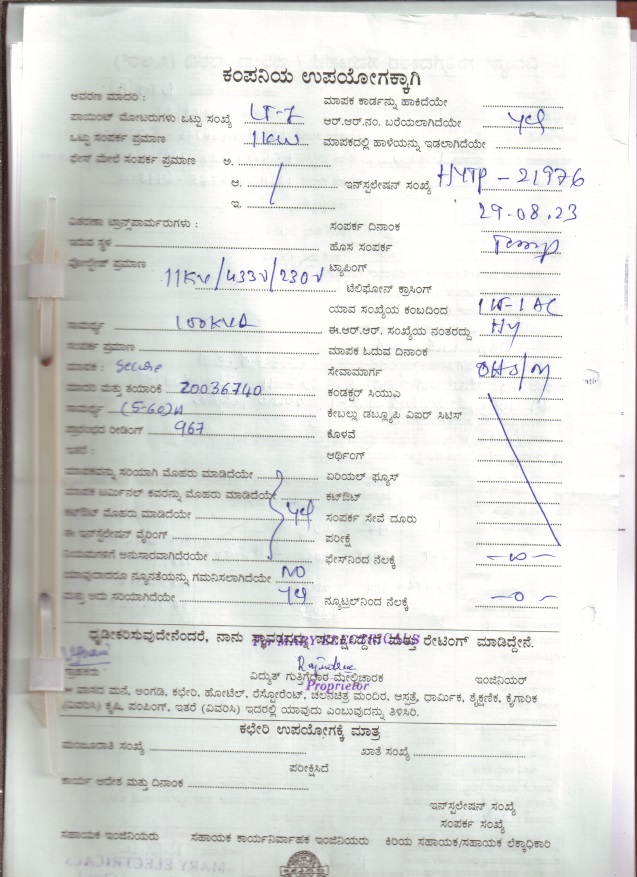 ಕಂಪನಿಯ ಉಪಯೋಗಕ್ಕಾಗಿ
ಆವರಣ ಮಾದರಿ : ಮಾಪಕ ಕಾರ್ಡನ್ನು ಹಾಕಿದೆಯೇ
ಪಾಯಿಂಟ್ ಮೋಟರುಗಳು ಒಟ್ಟು ಸಂಖ್ಯೆ LT-7 ಆರ್.ಆರ್.ನಂ. ಬರೆಯಲಾಗಿದೆಯೇ Yes
ಒಟ್ಟು ಸಂಪರ್ಕ ಪ್ರಮಾಣ 11KW ಮಾಪಕದಲ್ಲಿ ಹಾಳೆಯನ್ನು ಇಡಲಾಗಿದೆಯೇ
ಫೇಸ್ ಮೇಲೆ ಸಂಪರ್ಕ ಪ್ರಮಾಣ ಅ.
ಆ. ಇನ್‌ಸ್ಟಲೇಷನ್ ಸಂಖ್ಯೆ HYTP-21976
ಇ. 29.08.23
ವಿತರಣಾ ಟ್ರಾನ್ಸ್‌ಫಾರ್ಮರುಗಳು : ಸಂಪರ್ಕ ದಿನಾಂಕ
ಇರುವ ಸ್ಥಳ ಹೊಸ ಸಂಪರ್ಕ Temp
ವೋಲ್ಟೇಜ್ ಪ್ರಮಾಣ 11KV/433V/230V ಟ್ಯಾಪಿಂಗ್
ಟೆಲಿಫೋನ್ ಕ್ರಾಸಿಂಗ್
ಯಾವ ಸಂಖ್ಯೆಯ ಕಂಬದಿಂದ
ಸಾಮರ್ಥ್ಯ 100KVA ಈ.ಆರ್.ಆರ್. ಸಂಖ್ಯೆಯ ನಂತರದ್ದು HY
ಸಂಪರ್ಕ ಪ್ರಮಾಣ ಮಾಪಕ ಓದುವ ದಿನಾಂಕ
ಮಾಪಕ : Secure ಸೇವಾಮಾರ್ಗ
ಮಾದರಿ ಮತ್ತು ತಯಾರಿಕೆ 20036740 ಕಂಡಕ್ಟರ್ ಸಿಯುಎ
ಸಾಮರ್ಥ್ಯ (5-60)A ಕೇಬಲ್ಲು ಡಬ್ಲ್ಯೂಪಿ ವಿಐರ್ ಸಿಟಿಸ್
ಪ್ರಾರಂಭದ ರೀಡಿಂಗ್ 967 ಕೊಳವೆ
ಇತರೆ : ಅರ್ಥಿಂಗ್
ಮಾಪಕವನ್ನು ಸರಿಯಾಗಿ ಮೊಹರು ಮಾಡಿದೆಯೇ ಏರಿಯಲ್ ಫ್ಯೂಸ್
ಮಾಪಕ ಟರ್ಮಿನಲ್ ಕವರನ್ನು ಮೊಹರು ಮಾಡಿದೆಯೇ ಕಟ್‌ಔಟ್
ಕಟ್‌ಔಟ್ ಮೊಹರು ಮಾಡಿದೆಯೇ Yes ಸಂಪರ್ಕ ಸೇವೆ ದೂರು
ಈ ಇನ್‌ಸ್ಟಲೇಷನ್ ವೈರಿಂಗ್ ಪರೀಕ್ಷೆ
ನಿಯಮಗಳಿಗೆ ಅನುಸಾರವಾಗಿದೆಯೇ ಫೇಸ್‌ನಿಂದ ನೆಲಕ್ಕೆ
ಯಾವುದಾದರೂ ನ್ಯೂನತೆಯನ್ನು ಗಮನಿಸಲಾಗಿದೆಯೇ NO
ಮತ್ತು ಅದು ಸರಿಯಾಗಿದೆಯೇ Yes ನ್ಯೂಟ್ರಲ್‌ನಿಂದ ನೆಲಕ್ಕೆ -0-
ಧೃಡೀಕರಿಸುವುದೇನೆಂದರೆ, ನಾನು ಮತ್ತು ರೇಟಿಂಗ್ ಮಾಡಿದ್ದೇನೆ.
MARY ELECTRICALS
ಗ್ರಾಹಕರು ವಿದ್ಯುತ್ ಗುತ್ತಿಗೆದಾರ ಮೇಲ್ವಿಚಾರಕ ಇಂಜಿನಿಯರ್
Proprietor
ವಾಸದ ಮನೆ, ಅಂಗಡಿ, ಕಛೇರಿ, ಹೋಟೆಲ್, ರೆಸ್ಟೋರೆಂಟ್, ಚಲನಚಿತ್ರ ಮಂದಿರ, ಆಸ್ಪತ್ರೆ, ಧಾರ್ಮಿಕ, ಶೈಕ್ಷಣಿಕ, ಕೈಗಾರಿಕ
(ವಿವರಿಸಿ) ಕೃಷಿ, ಪಂಪಿಂಗ್, ಇತರೆ (ವಿವರಿಸಿ) ಇದರಲ್ಲಿ ಯಾವುದು ಎಂಬುವುದನ್ನು ತಿಳಿಸಿರಿ.
ಕಛೇರಿ ಉಪಯೋಗಕ್ಕೆ ಮಾತ್ರ
ಮಂಜೂರಾತಿ ಸಂಖ್ಯೆ ಖಾತೆ ಸಂಖ್ಯೆ
ಪರೀಕ್ಷಿಸಿದೆ
ಕಾರ್ಯ ಆದೇಶ ಮತ್ತು ದಿನಾಂಕ
ಇನ್‌ಸ್ಟಲೇಷನ್ ಸಂಖ್ಯೆ
ಸಂಪರ್ಕ ಸಂಖ್ಯೆ
ಸಹಾಯಕ ಇಂಜಿನಿಯರು ಸಹಾಯಕ ಕಾರ್ಯನಿರ್ವಾಹಕ ಇಂಜಿನಿಯರು ಕಿರಿಯ ಸಹಾಯಕ/ಸಹಾಯಕ ಲೆಕ್ಕಾಧಿಕಾರಿ